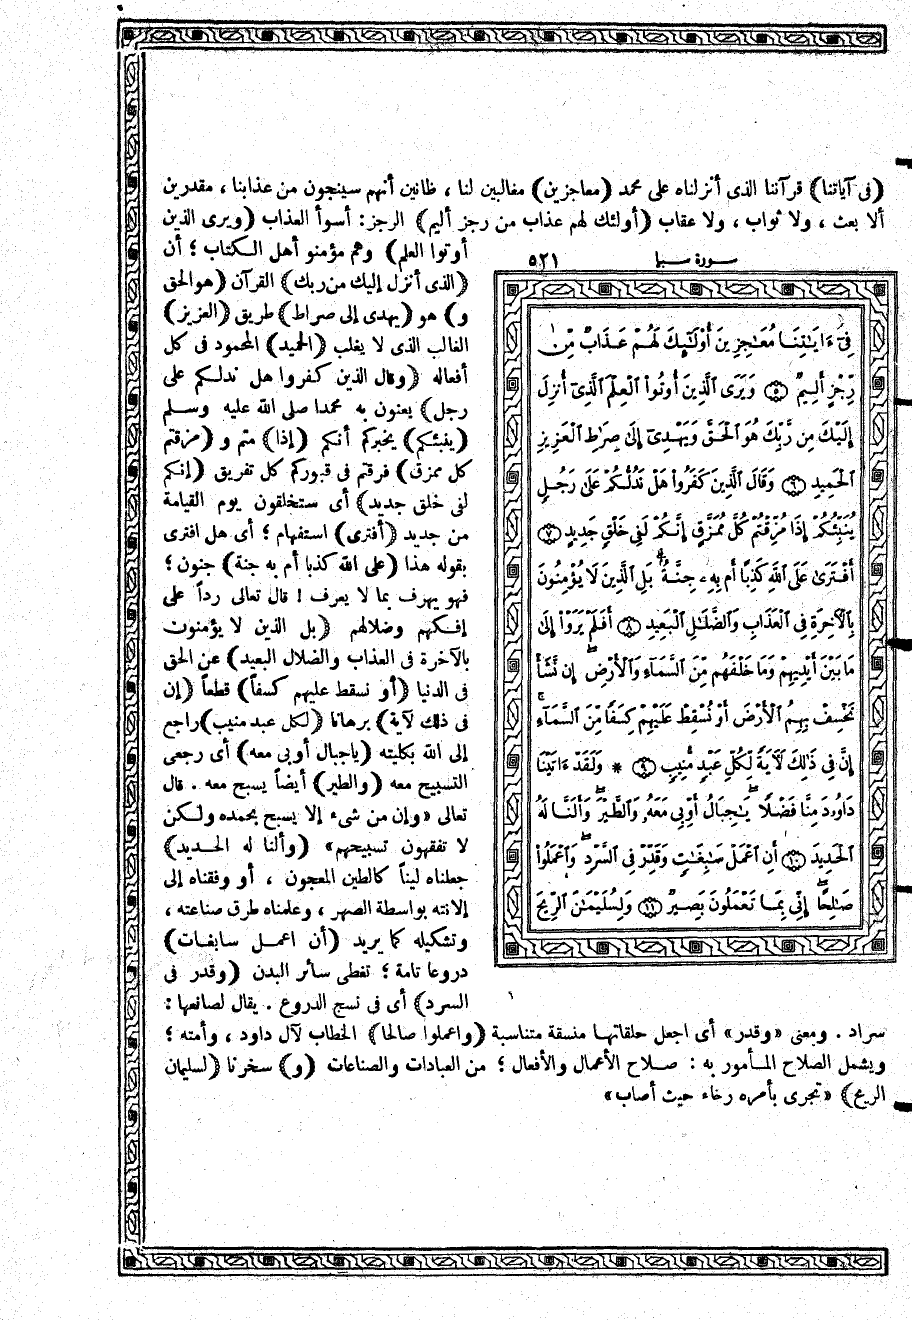 (فى آياتنا) قرآننا الذى أنزلناه على محمد (معاجزين) مغالبين لنا ، ظانين أنهم سينجون من عذابنا ، مقدرين
ألا بعث ، ولا ثواب ، ولا عقاب (أولئك لهم عذاب من رجز أليم) الرجز: أسوأ العذاب (ويرى الذين
أوتوا العلم) وهم مؤمنو أهل الكتاب ؛ أن
(الذى أنزل إليك من ربك) القرآن (هو الحق
و) هو (يهدى إلى صراط) طريق (العزيز)
الغالب الذى لا يغلب (الحميد) المحمود فى كل
أفعاله (وقال الذين كفروا هل ندلكم على
رجل) يعنون به محمدا صلى الله عليه وسلم
(ينبئكم) يخبركم أنكم (إذا) متم و (مزقتم
كل ممزق) فرقتم فى قبوركم كل تفريق (إنكم
لفى خلق جديد) أى ستخلقون يوم القيامة
من جديد (أفترى) استفهام ؛ أى هل افترى
بقوله هذا (على الله كذبا أم به جنة) جنون ؛
فهو يهرف بما لا يعرف ! قال تعالى رداً على
إفكهم وضلالهم (بل الذين لا يؤمنون
بالآخرة فى العذاب والضلال البعيد) عن الحق
فى الدنيا (أو نسقط عليهم كسفاً) قطعاً (إن
فى ذلك لآية) برهانا (لكل عبد منيب) راجع
إلى الله بكليته (ياجبال أوبى معه) أى رجعى
التسبيح معه (والطير) أيضاً يسبح معه . قال
تعالى «وإن من شىء إلا يسبح بحمده ولكن
لا تفقهون تسبيحهم» (وألنا له الحديد)
جعلناه ليناً كالطين المعجون ، أو وفقناه إلى
إلانته بواسطة الصهر ، وعلمناه طرق صناعته ،
وتشكيله كما يريد (أن اعمل سابغات)
دروعا تامة ؛ تغطى سائر البدن (وقدر فى
السرد) أى فى نسج الدروع . يقال لصانعها :
سورة سبإ ٥٢١
فِىٓ ءَايَٰتِنَا مُعَٰجِزِينَ أُوْلَٰٓئِكَ لَهُمْ عَذَابٌ مِّن
رِّجْزٍ أَلِيمٌ ۝٥ وَيَرَى ٱلَّذِينَ أُوتُواْ ٱلْعِلْمَ ٱلَّذِىٓ أُنزِلَ
إِلَيْكَ مِن رَّبِّكَ هُوَ ٱلْحَقَّ وَيَهْدِىٓ إِلَىٰ صِرَٰطِ ٱلْعَزِيزِ
ٱلْحَمِيدِ ۝٦ وَقَالَ ٱلَّذِينَ كَفَرُواْ هَلْ نَدُلُّكُمْ عَلَىٰ رَجُلٍ
يُنَبِّئُكُمْ إِذَا مُزِّقْتُمْ كُلَّ مُمَزَّقٍ إِنَّكُمْ لَفِى خَلْقٍ جَدِيدٍ ۝٧
أَفْتَرَىٰ عَلَى ٱللَّهِ كَذِبًا أَم بِهِۦ جِنَّةٌۢ بَلِ ٱلَّذِينَ لَا يُؤْمِنُونَ
بِٱلْأٓخِرَةِ فِى ٱلْعَذَابِ وَٱلضَّلَٰلِ ٱلْبَعِيدِ ۝٨ أَفَلَمْ يَرَوْاْ إِلَىٰ
مَا بَيْنَ أَيْدِيهِمْ وَمَا خَلْفَهُم مِّنَ ٱلسَّمَآءِ وَٱلْأَرْضِۚ إِن نَّشَأْ
نَخْسِفْ بِهِمُ ٱلْأَرْضَ أَوْ نُسْقِطْ عَلَيْهِمْ كِسَفًا مِّنَ ٱلسَّمَآءِۚ
إِنَّ فِى ذَٰلِكَ لَأٓيَةً لِّكُلِّ عَبْدٍ مُّنِيبٍ ۝٩ * وَلَقَدْ ءَاتَيْنَا
دَاوُۥدَ مِنَّا فَضْلًاۖ يَٰجِبَالُ أَوِّبِى مَعَهُۥ وَٱلطَّيْرَۖ وَأَلَنَّا لَهُ
ٱلْحَدِيدَ ۝١٠ أَنِ ٱعْمَلْ سَٰبِغَٰتٍ وَقَدِّرْ فِى ٱلسَّرْدِۖ وَٱعْمَلُواْ
صَٰلِحًاۖ إِنِّى بِمَا تَعْمَلُونَ بَصِيرٌ ۝١١ وَلِسُلَيْمَٰنَ ٱلرِّيحَ
سراد . ومعنى «وقدر» أى اجعل حلقاتها منسقة متناسبة (واعملوا صالحا) الخطاب لآل داود ، وأمته ؛
ويشمل الصلاح المأمور به : صلاح الأعمال والأفعال ؛ من العبادات والصناعات (و) سخرنا (لسليمان
الريح) «تجرى بأمره رخاء حيث أصاب»